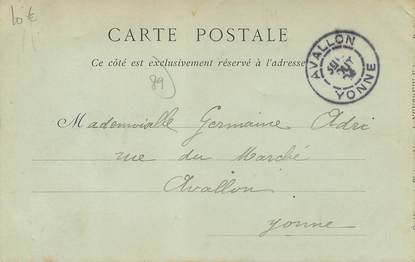 10 €
CARTE POSTALE
Ce côté est exclusivement réservé à l'adresse
89
AVALLON
YONNE
Mademoiselle Germaine Adri
rue du Marché
Avallon
Yonne